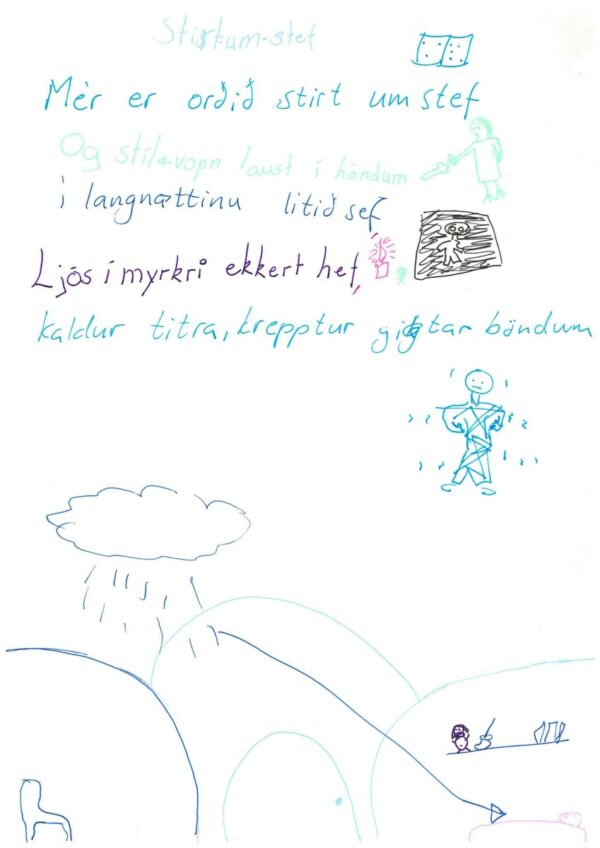 Stirt-um-stef
Mér er orðið stirt um stef
Og stílavopn laust í höndum
í langnættinu lítið sef
Ljós í myrkri ekkert hef,
kaldur titra, krepptur gigtar böndum